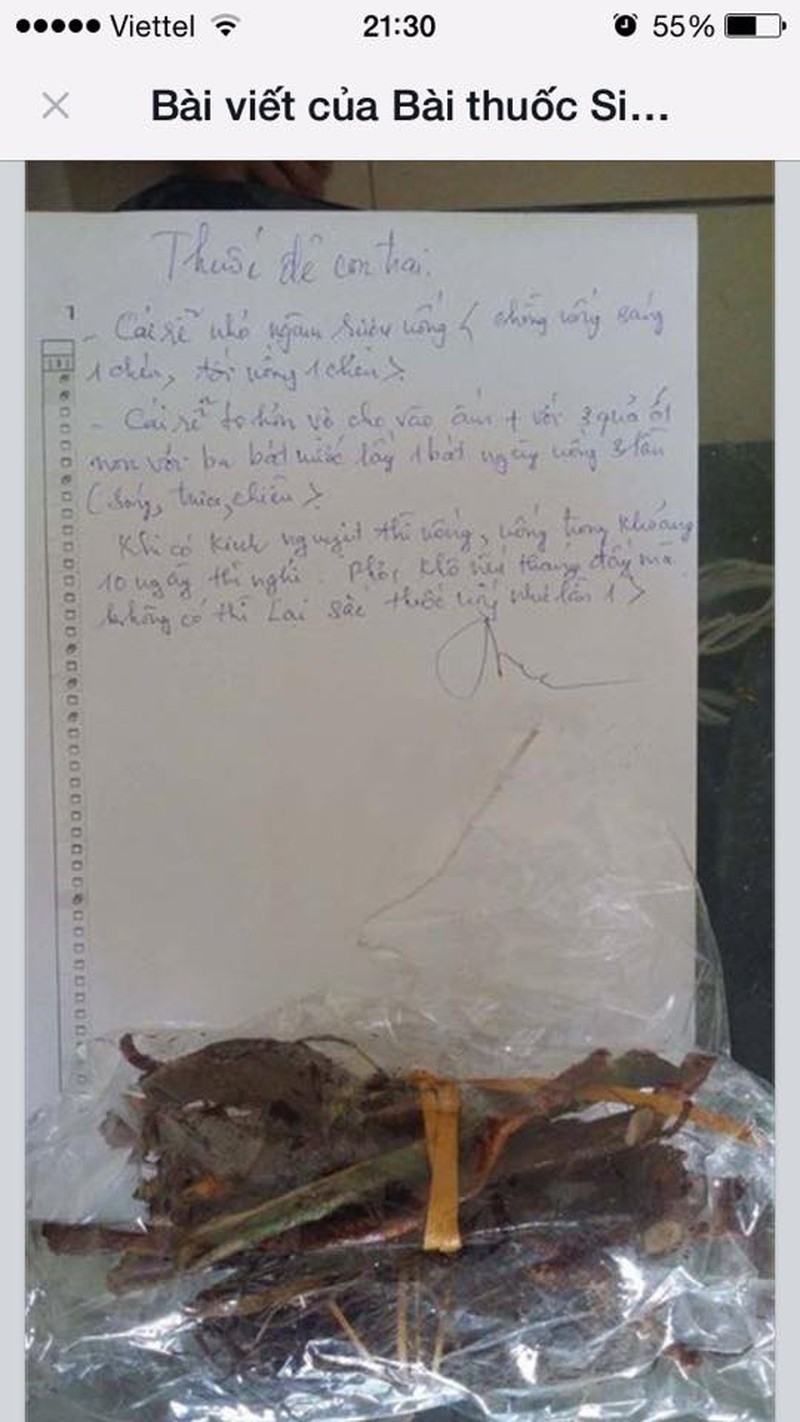 Viettel 21:30 55%
Bài viết của Bài thuốc Si...
Thuốc đẻ con trai.
1
- Cái rễ nhỏ ngâm rượu uống ( chồng uống sáng
1 chén, tối uống 1 chén ).
- Cái rễ to hơn vò cho vào ấm + với 3 quả ớt
non với ba bát nước lấy 1 bát ngày uống 3 lần
( Sáng, trưa, chiều ).
Khi có kinh nguyệt thì uống, uống trong khoảng
10 ngày thì nghỉ. Phơi khô nếu tháng đấy mà
không có thì lại sắc thuốc uống như lần 1 )